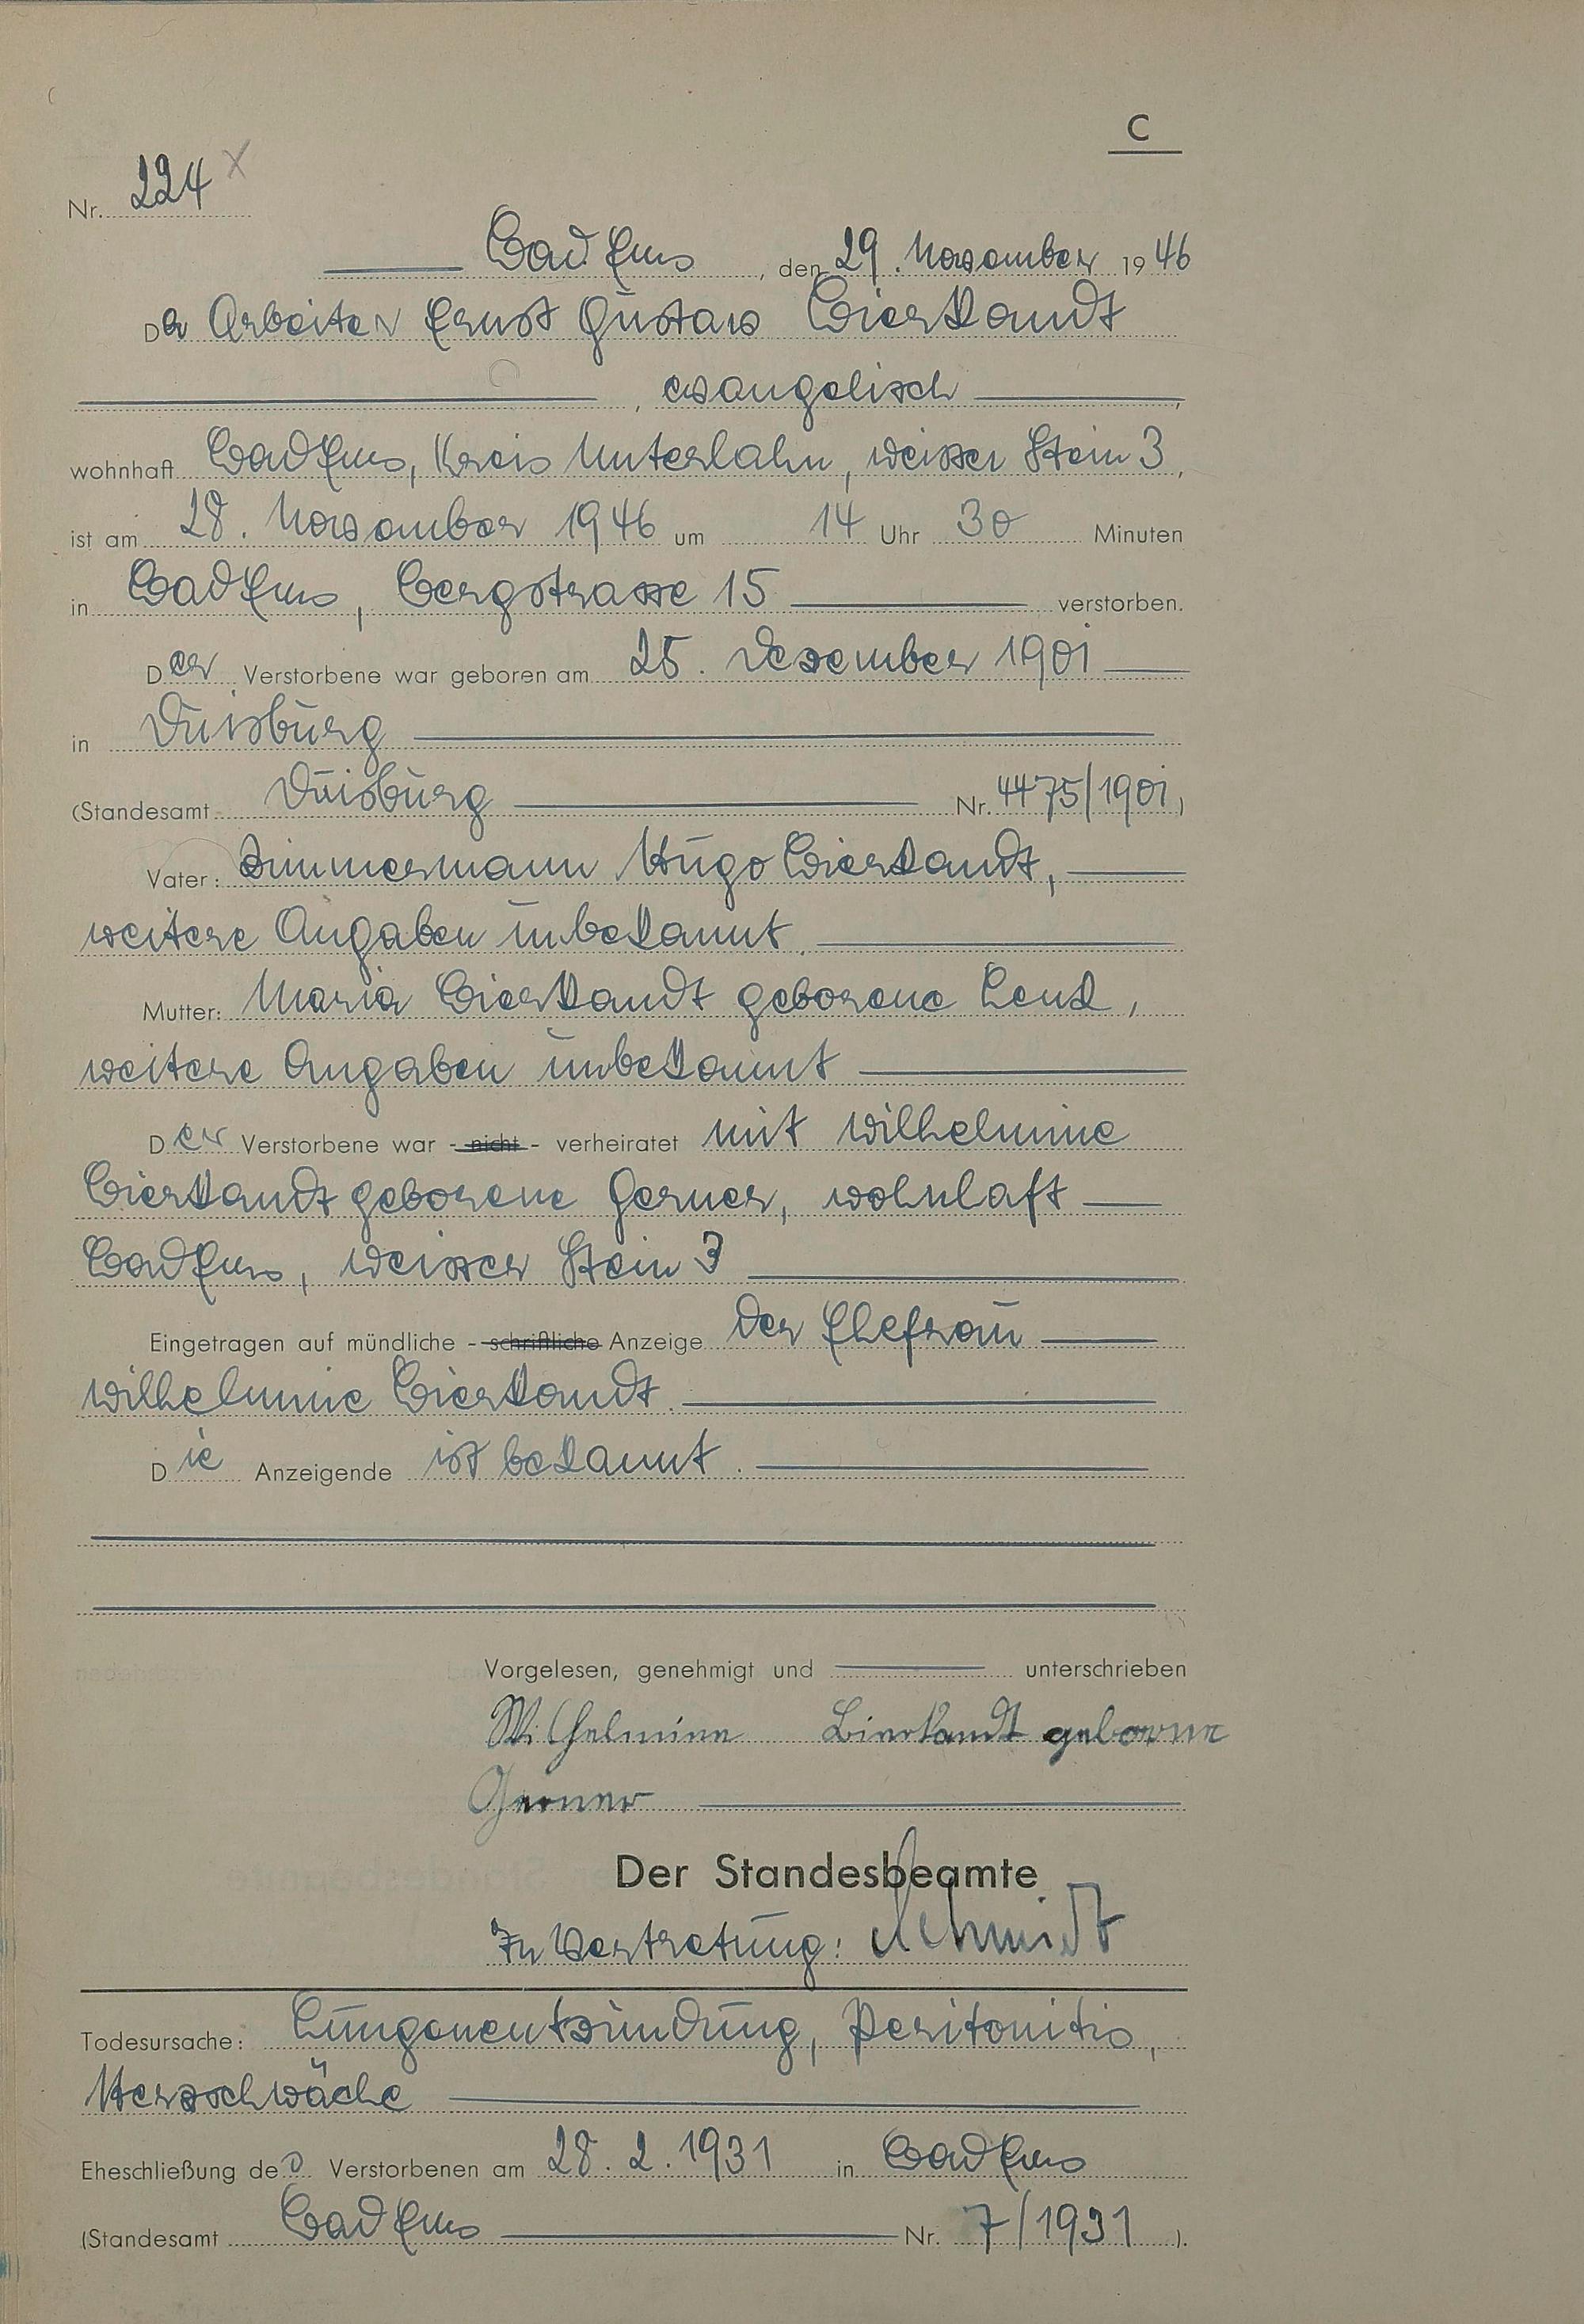 C
Nr. 224 X
Bad Ems, den 29. November 1946
Der Arbeiter Ernst Gustav Bierkandt
, evangelisch,
wohnhaft Bad Ems, Kreis Unterlahn, weisser Stein 3,
ist am 28. November 1946 um 14 Uhr 30 Minuten
in Bad Ems, Bergstrasse 15 verstorben.
Der Verstorbene war geboren am 25. Dezember 1901
in Duisburg
(Standesamt Duisburg Nr. 4475/1901)
Vater: Zimmermann Hugo Bierkandt,
weitere Angaben unbekannt.
Mutter: Maria Bierkandt geborene Lenk,
weitere Angaben unbekannt
Der Verstorbene war - nicht - verheiratet mit Wilhelmine
Bierkandt geborene Gerner, wohnhaft
Bad Ems, weisser Stein 3
Eingetragen auf mündliche - schriftliche Anzeige der Ehefrau
Wilhelmine Bierkandt.
Die Anzeigende ist bekannt.
Vorgelesen, genehmigt und unterschrieben
Wilhelmine Bierkandt geborne
Gerner
Der Standesbeamte
In Vertretung: Schmidt
Todesursache: Lungenentzündung, Peritonitis,
Herzschwäche
Eheschließung des Verstorbenen am 28. 2. 1931 in Bad Ems
(Standesamt Bad Ems Nr. 7/1931).